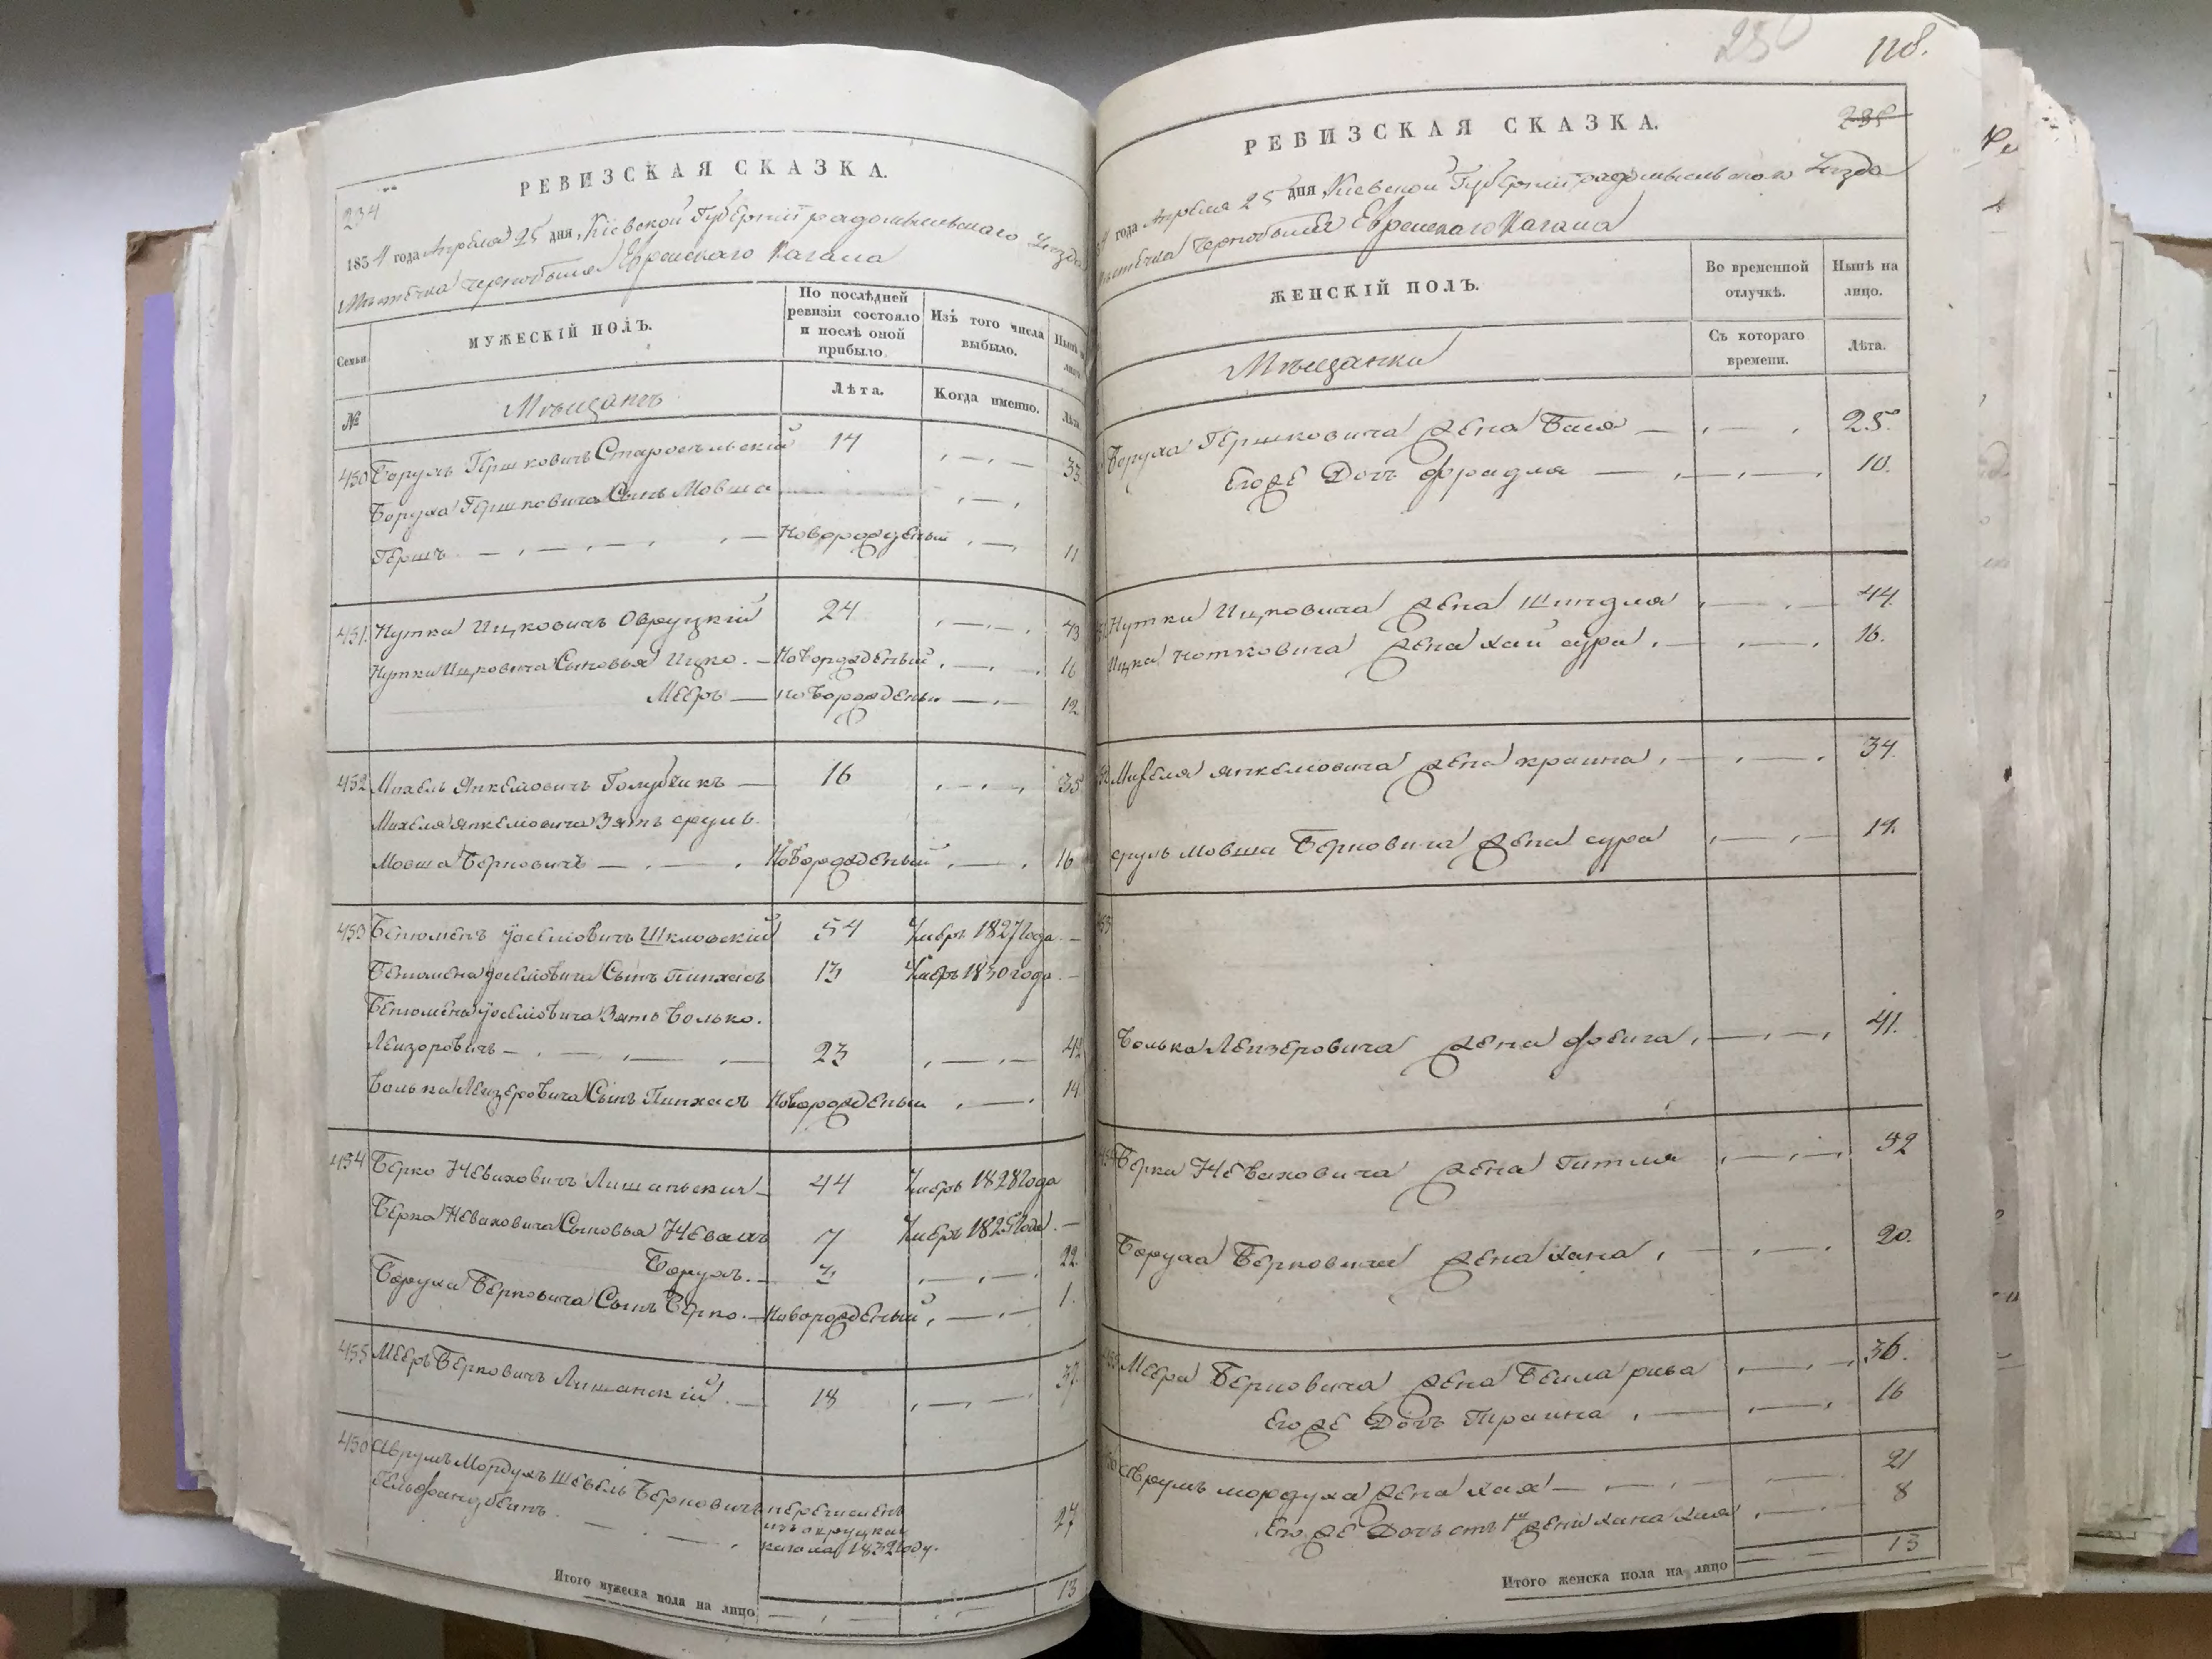 234
РЕВИЗСКАЯ СКАЗКА.
1834 года Апреля 25 дня, Кіевской Губерніи радомысльскаго Уезда
Мѣстечка чернобыля Еврейскаго Кагала
Семьи
МУЖЕСКІЙ ПОЛЪ.
По послѣдней ревизіи состояло и послѣ оной прибыло
Изъ того числа выбыло.
Нынѣ на лицо
№
Мѣщанъ
Лѣта.
Когда именно.
Лѣта
450 Борухъ Гершковичъ Старосельскій 14 33.
Боруха Гершковича Сынъ Мовша
Гершъ Новорожденый 11
451. Нутка Ицковичъ Овруцкій 24 43
Нутки Ицковича Сыновья Ицко. Новорожденый 16
Мееръ новорожденый 12
452 Михель Янкелiовичъ Голубчикъ 16 35
Михеля Янкелiовича Зять сруль
Мовша Берковичъ Новорожденый 16
453 Бенюменъ Іоселiовичъ Шкловскій 54 Умеръ 1827 года
Бенюмена Іоселiовича Сынъ Пинхасъ 13 Умеръ 1830 года
Бенюмена Іоселiовича Зять Волько.
Лейзоровичъ 23 42
Волька Лейзеровича Сынъ Пинхасъ Новорожденый 14
454 Берко Невахович Лишанский 44 Умеръ 1828 года
Берка Неваховича Сыновья Невахъ 7 Умеръ 1825 года
Борухъ. 3 22.
Боруха Берковича Сынъ Берко. Новорожденый 1.
455 Мееръ Берковичъ Лишанскій 18 37.
456 Аврумъ Мордухъ Шевель Берковичъ перечисленъ
Гельфандбеинъ изъ овруцкаго 27
кагала 1832 году.
Итого мужеска пола на лицо 13
250
118.
235
РЕВИЗСКАЯ СКАЗКА.
года Апреля 25 дня Кіевской Губерніи радомысльскаго Уезда
Мѣстечка Чернобыля Еврейскаго Кагала
ЖЕНСКІЙ ПОЛЪ.
Во временной отлучкѣ.
Нынѣ на лицо.
Мѣщанки
Съ котораго времени.
Лѣта.
Боруха Гершковича жена Бася 25.
Егоже Дочь фрадля 10.
Нутки Ицковича жена Шиндля 44.
Ицка Нотковича жена хаи сура 16.
Михеля янкелiовича жена краина 34.
сруль Мовша Берковича жена сура 19.
453
Волька Лейзеровича жена фейга 41.
Берка Неваховича жена Гитля 52
Боруха Берковича жена хана 20.
Меера Берковича жена Бейла рива 36.
Егоже Дочь Траина 16
Аврумъ мордуха жена хая 21
Егоже Дочь отъ 1й жены хана хая 8
Итого женска пола на лицо 13